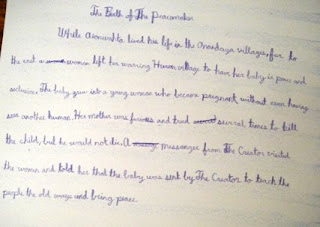 The Birth of The Peacemaker
While Aiionwatha lived his life in the Onondaga villages, far to
the east a woman left her warring Huron village to have her baby in peace and
seclusion. The baby grew into a young woman who became pregnant without even having
seen another human. Her mother was furious and tried several times to kill
the child, but he would not die. A messanger from The Creator visited
the woman and told her that the baby was sent by The Creator to teach the
people the old ways and bring peace.